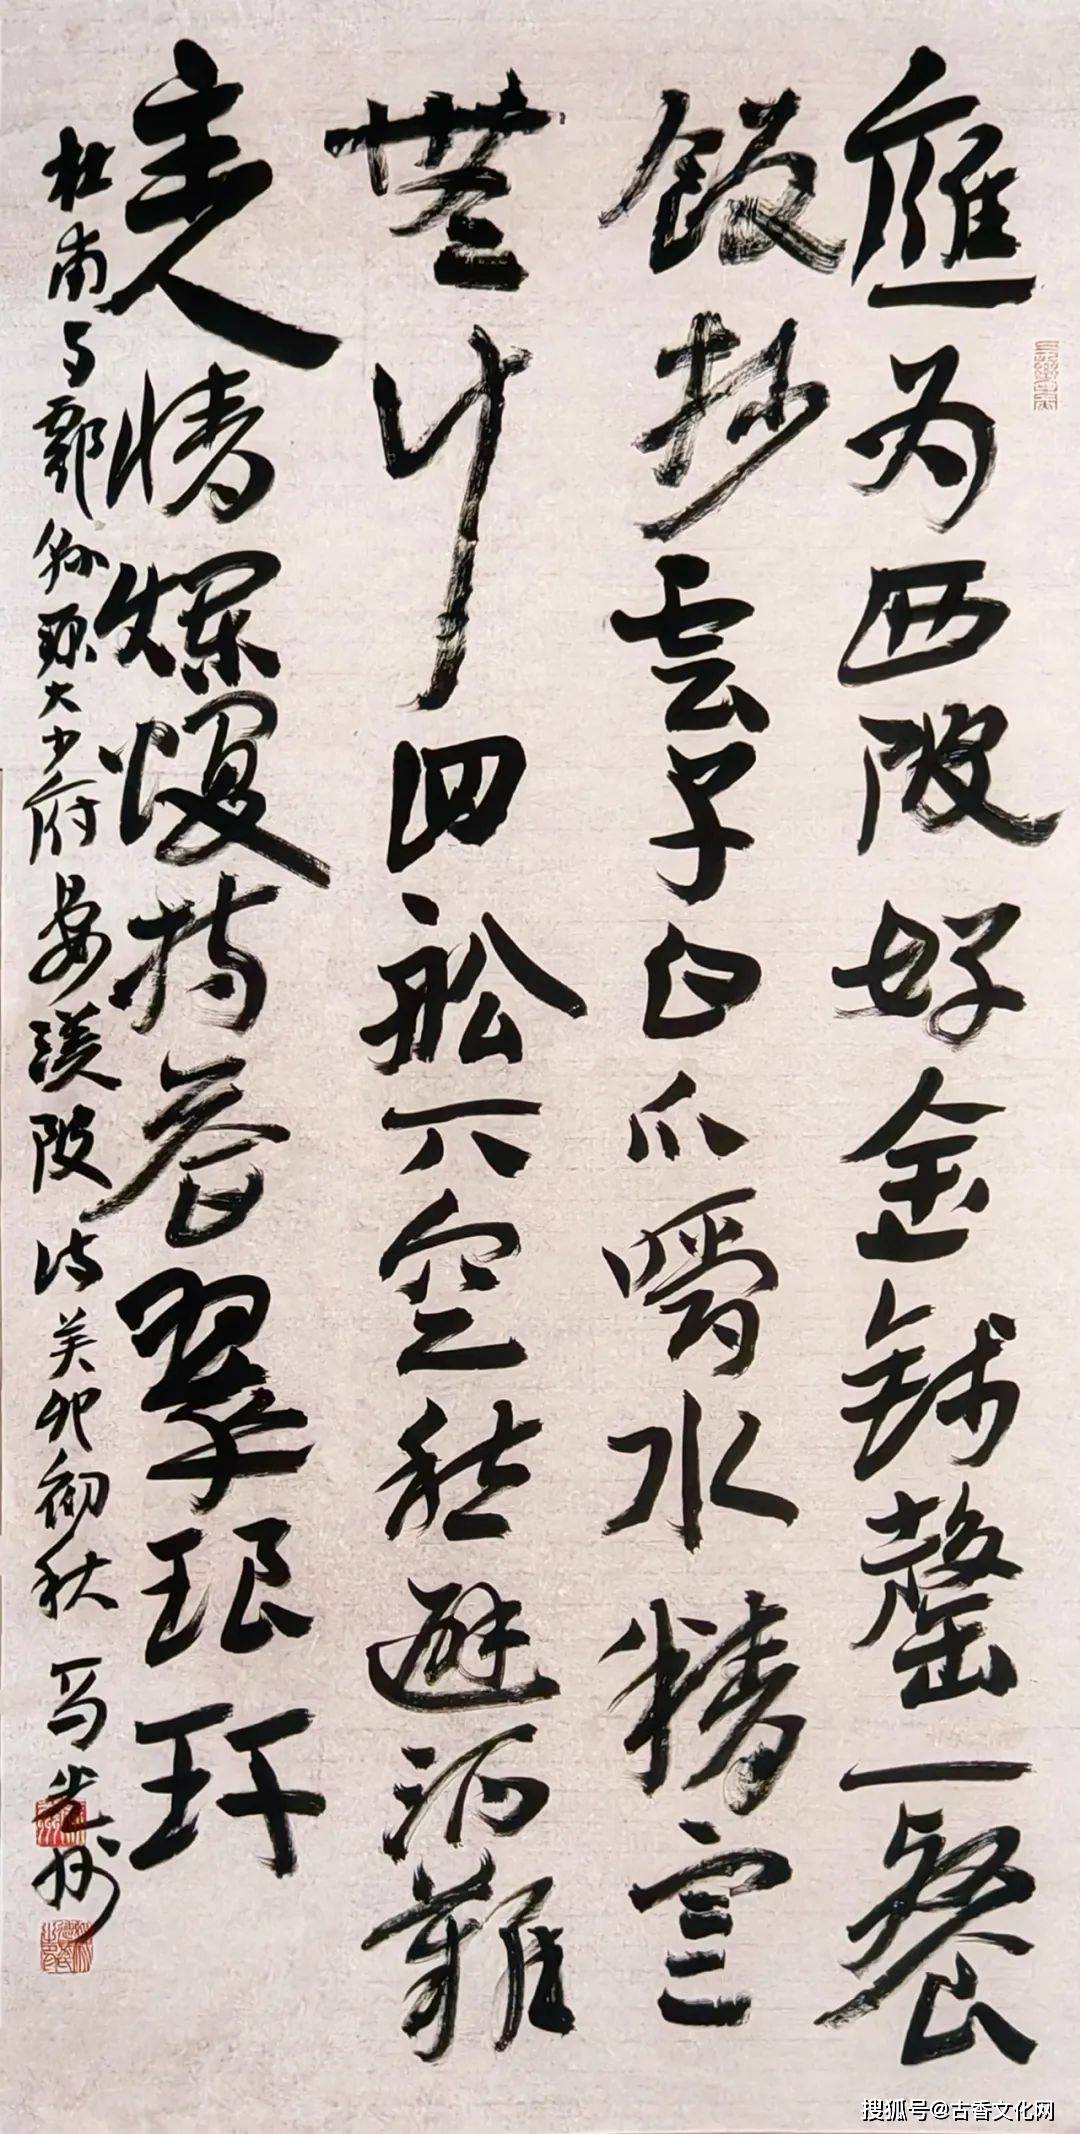 應为西陂好金錢罄一餐
飯抄雲子白瓜嚼水精寒
無計回舩下空愁避酒難
主人情爛熳持答翠琅玕
杜甫与鄠縣源大少府宴渼陂诗癸卯初秋馬
搜狐号@古香文化网